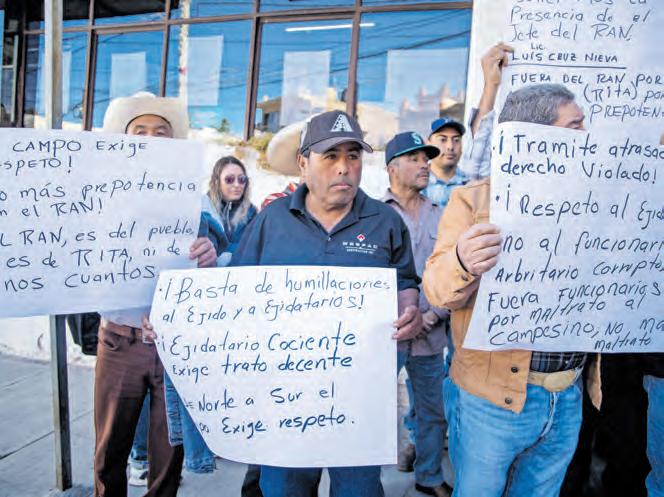 Presencia de el
Jefe del RAN.
LIC.
LUIS CRUZ NIEVA
FUERA DEL RAN POR
(RITA) POR
PREPOTEN
CAMPO EXIGE
SPETO!
o más prepotencia
n el RAN!
L RAN, es del pueblo
es de RITA, ni de
nos cuantos
A
WESPAC
¡Basta de humillaciones
al Ejido y a Ejidatarios!
¡Ejidatario Cociente
Exige trato decente
Norte a Sur el
Exige respeto.
¡Tramite atrasad
derecho Violado!
¡Respeto al Ejid
no al funcionari
Arbitrario corrupt
Fuera Funcionarios
por maltrato al
Campesino, No, ma
maltrato